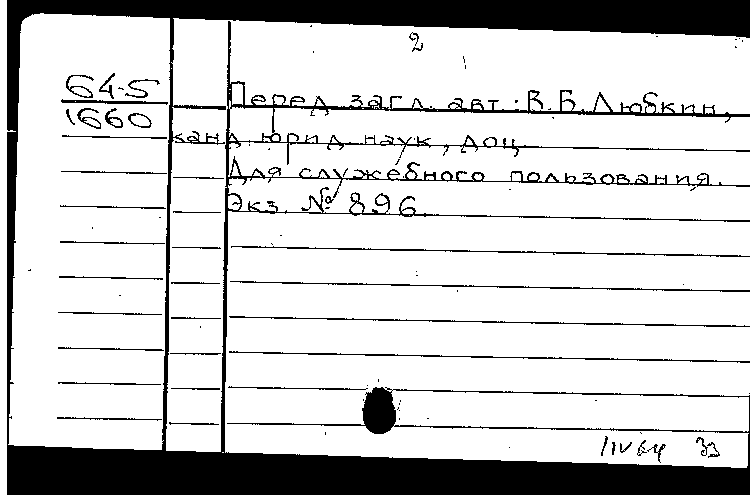 2
64-5
1660
Перед загл. авт.: В.Б. Любкин,
канд. юрид. наук, доц.
Для служебного пользования.
Экз. № 896.
1IV64 33